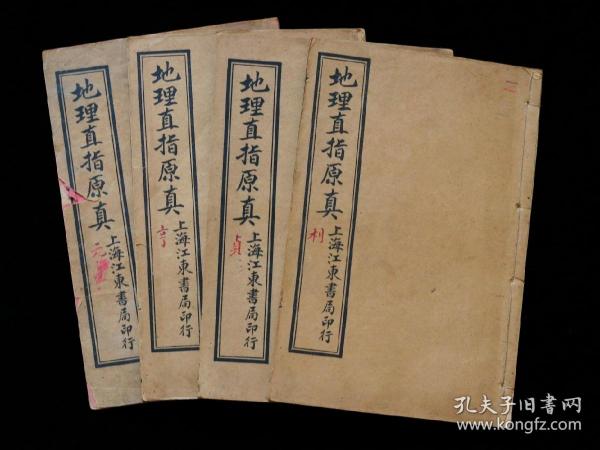 地理直指原真
上海江東書局印行
元
地理直指原真
上海江東書局印行
亨
地理直指原真
上海江東書局印行
貞
地理直指原真
上海江東書局印行
利
三
孔夫子旧书网
www.kongfz.com